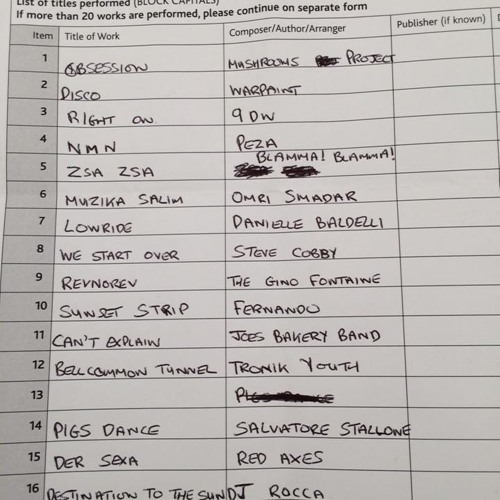 List of titles performed (BLOCK CAPITALS)
If more than 20 works are performed, please continue on separate form
Item Title of Work Composer/Author/Arranger Publisher (if known)
1 OBSESSION MUSHROOMS PROJECT
2 DISCO WARPAINT
3 RIGHT ON 9DW
4 NMN PEZA
5 ZSA ZSA BLAMMA! BLAMMA!
6 MUZIKA SALIM OMRI SMADAR
7 LOWRIDE DANIELLE BALDELLI
8 WE START OVER STEVE COBBY
9 REVNOREV THE GINO FONTAINE
10 SUNSET STRIP FERNANDO
11 CAN'T EXPLAIN JOES BAKERY BAND
12 BELLCOMMON TUNNEL TRONIK YOUTH
13
14 PIGS DANCE SALVATORE STALLONE
15 DER SEXA RED AXES
16 DESTINATION TO THE SUN DJ ROCCA